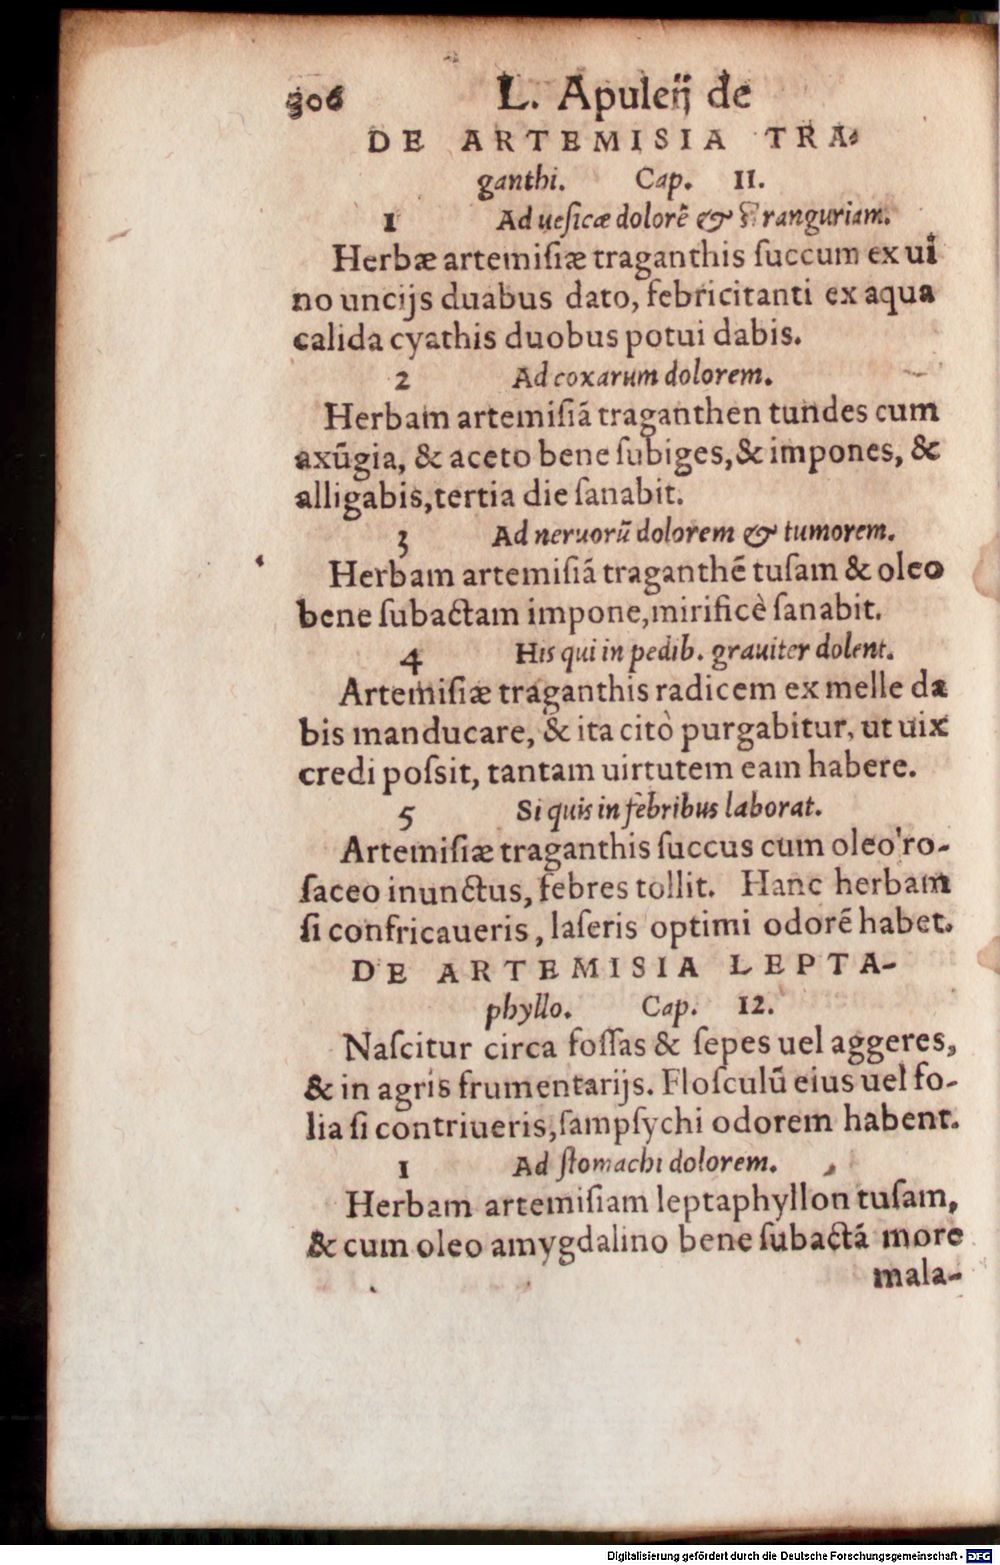 306 L. Apuleĳ de
DE ARTEMISIA TRA-
ganthi. Cap. 11.
1 Ad ueſicæ dolorē & ſtranguriam.
Herbæ artemiſiæ traganthis ſuccum ex ui
no uncijs duabus dato, febricitanti ex aqua
calida cyathis duobus potui dabis.
2 Ad coxarum dolorem.
Herbam artemiſiā traganthen tundes cum
axūgia, & aceto bene ſubiges, & impones, &
alligabis, tertia die ſanabit.
3 Ad neruorū dolorem & tumorem.
Herbam artemiſiā traganthē tuſam & oleo
bene ſubactam impone, mirificè ſanabit.
4 His qui in pedib. grauiter dolent.
Artemiſiæ traganthis radicem ex melle da
bis manducare, & ita citò purgabitur, ut uix
credi poſsit, tantam uirtutem eam habere.
5 Si quis in febribus laborat.
Artemiſiæ traganthis ſuccus cum oleo ro-
ſaceo inunctus, febres tollit. Hanc herbam
ſi confricaueris, laſeris optimi odorē habet.
DE ARTEMISIA LEPTA-
phyllo. Cap. 12.
Naſcitur circa foſſas & ſepes uel aggeres,
& in agris frumentarijs. Floſculū eius uel fo-
lia ſi contriueris, ſampſychi odorem habent.
1 Ad ſtomachi dolorem.
Herbam artemiſiam leptaphyllon tuſam,
& cum oleo amygdalino bene ſubactā more
mala-
Digitalisierung gefördert durch die Deutsche Forschungsgemeinschaft - DFG